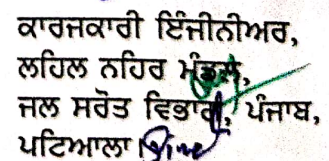 ਕਾਰਜਕਾਰੀ ਇੰਜੀਨੀਅਰ,
ਲਹਿਲ ਨਹਿਰ ਮੰਡਲ,
ਜਲ ਸਰੋਤ ਵਿਭਾਗ, ਪੰਜਾਬ,
ਪਟਿਆਲਾ